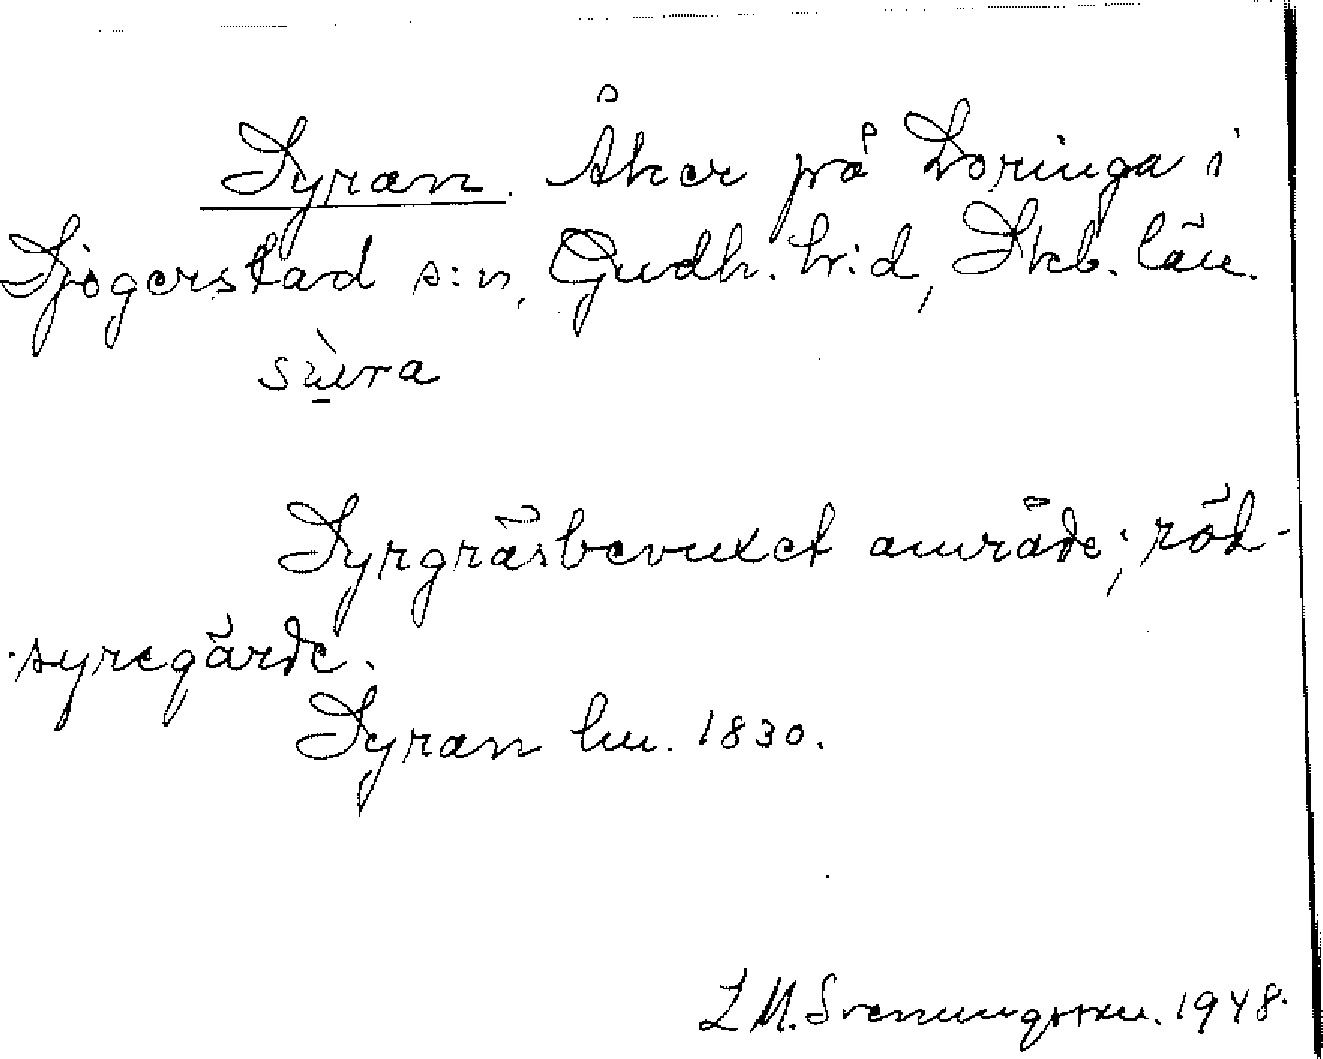 Syran. Åker på Loringa i
Sjogerstad s:n, Gudh. h:d, Skb. län.
sùra
Syrgräsbevuxet område; röd-
syregärde.
Syran hu. 1830.
L M. Svenungsson. 1948.